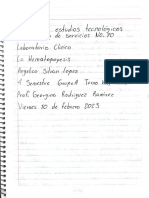 estudios tecnológicos
de servicios No. 70
Laboratorio Clínico
La Hematopoyesis
Angelica Silvan López
1° Semestre Grupo A Turno
Prof. Georgina Rodriguez Ramírez
Viernes 10 de febrero 2023